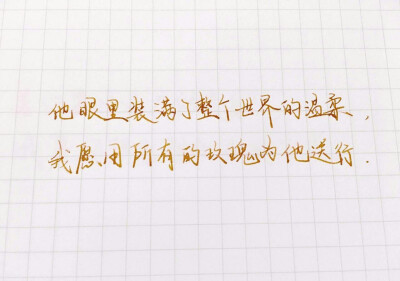 他眼里装满了整个世界的温柔，
我愿用所有的玫瑰为他送行.